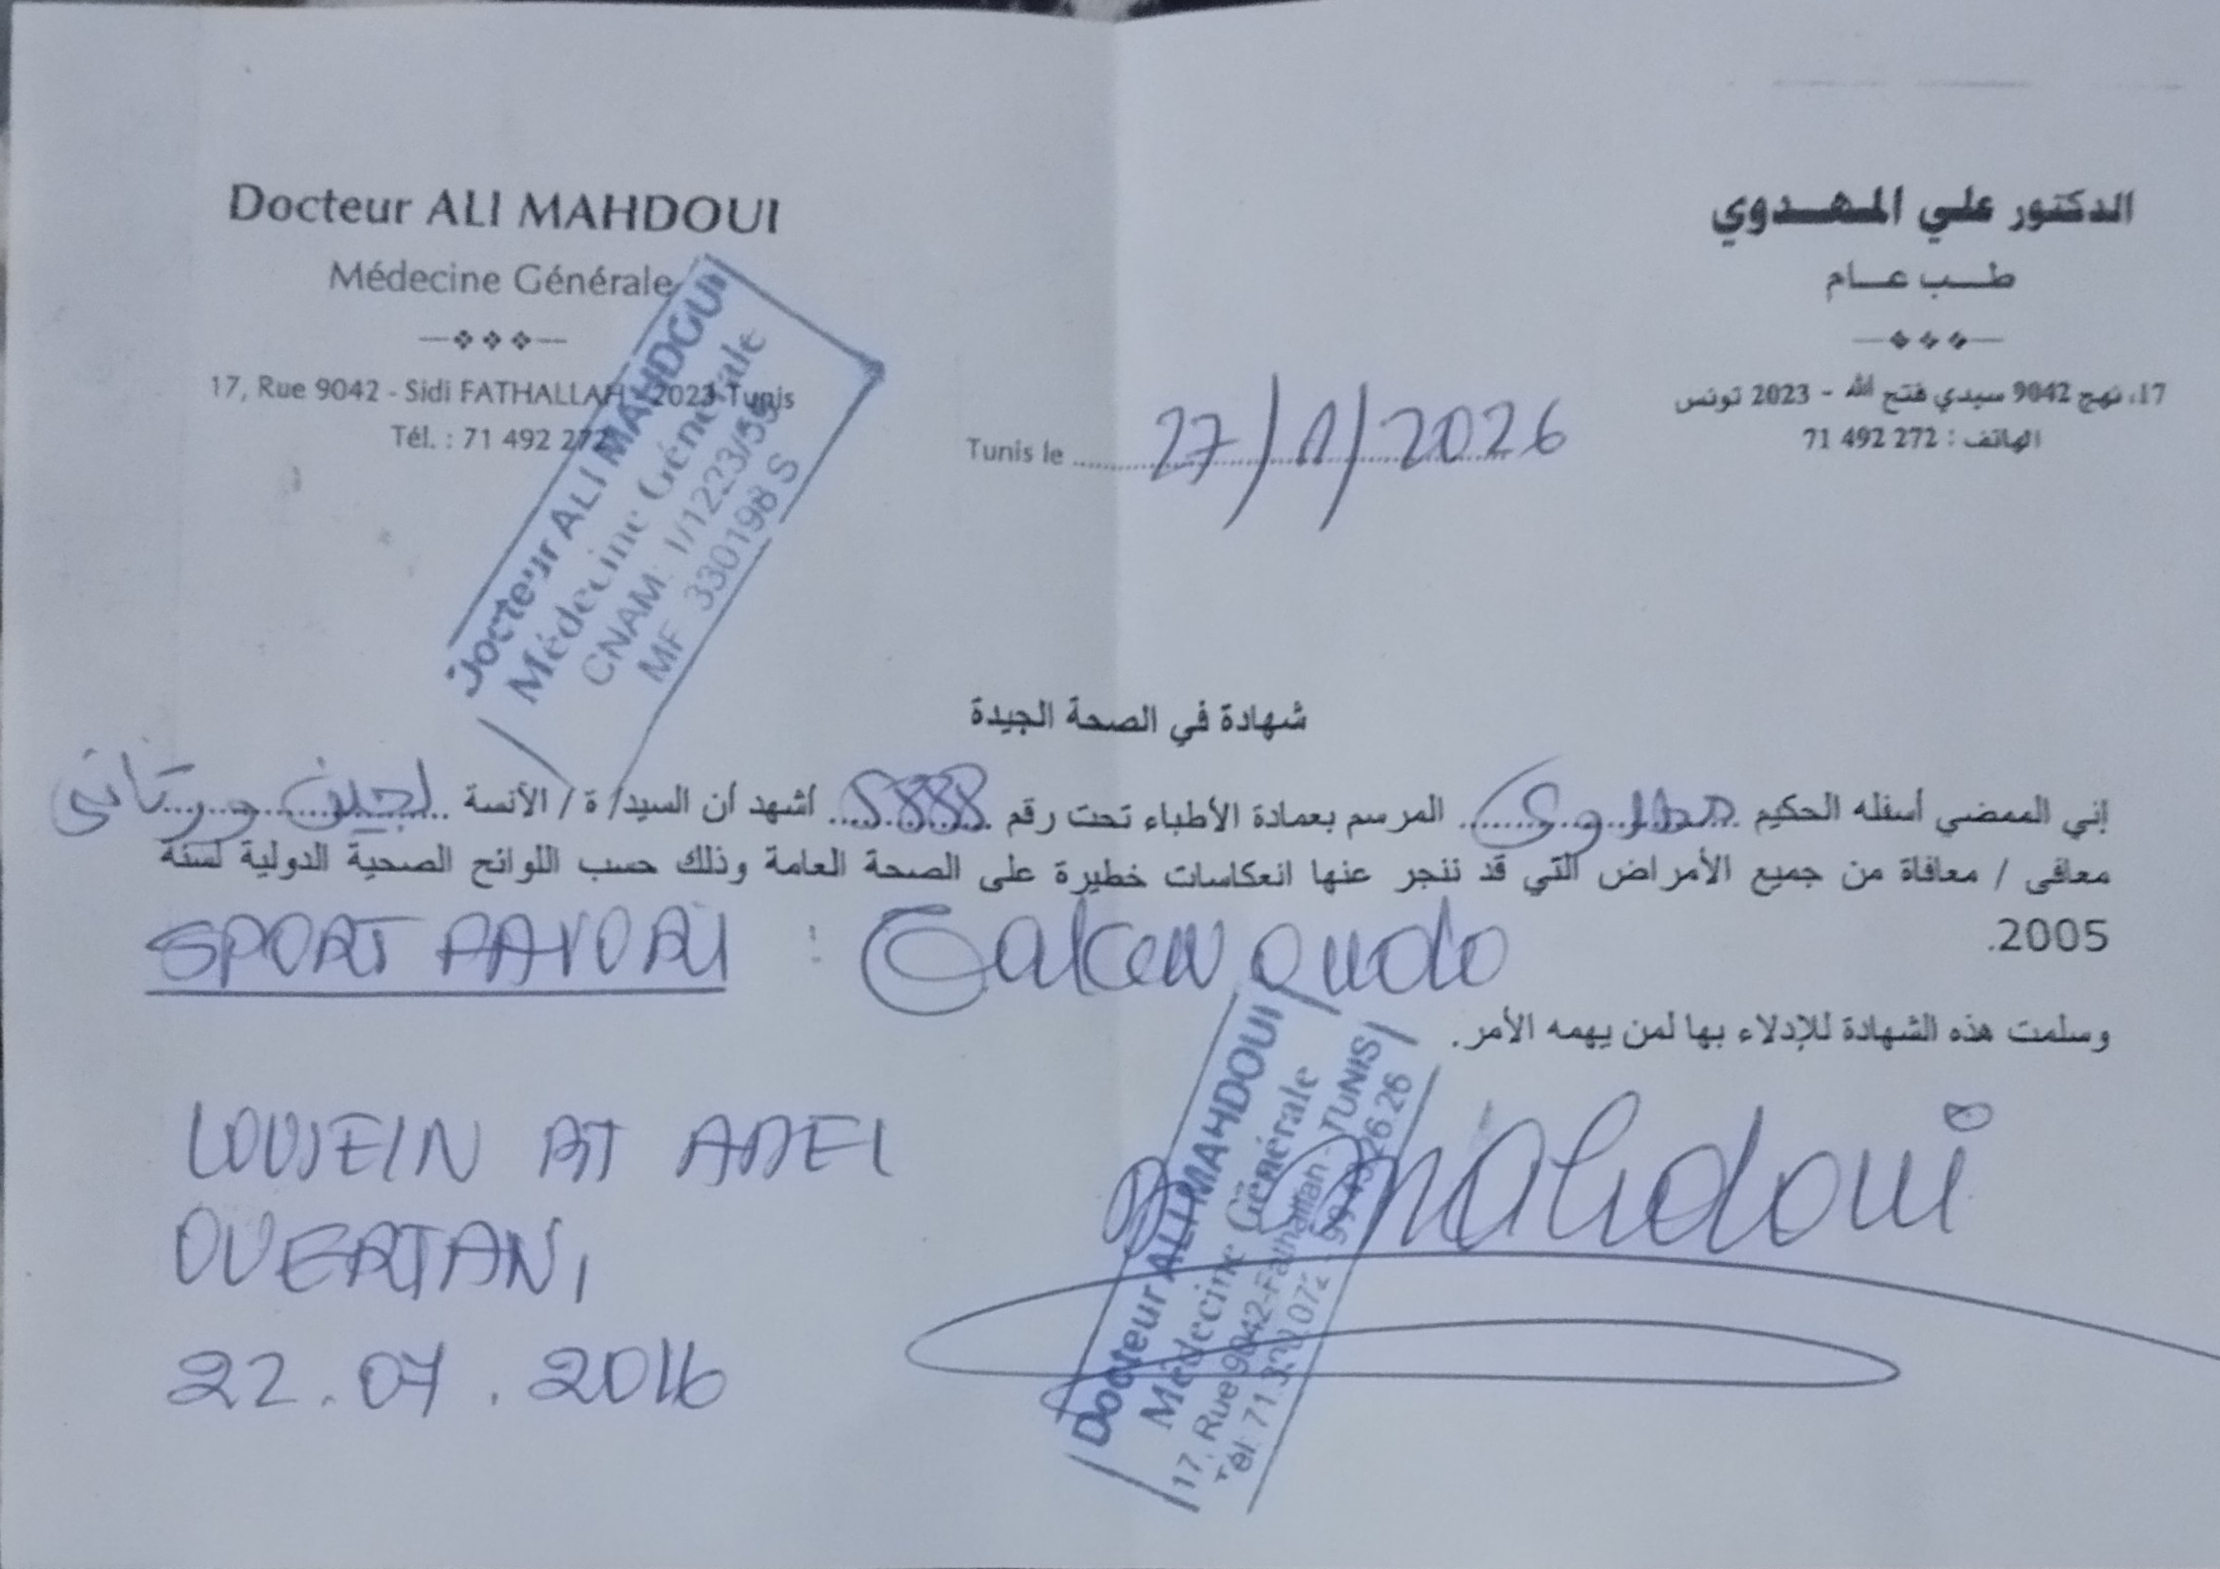 Docteur ALI MAHDOUI
Médecine Générale
17, Rue 9042 - Sidi FATHALLAH - 2023 Tunis
Tél. : 71 492 272
الدكتور علي المهدوي
طب عام
17، نهج 9042 سيدي فتح الله - 2023 تونس
الهاتف : 272 492 71
Docteur ALI MAHDOUI
Médecine Générale
CNAM: 1/1223/55
MF 330198 S
Tunis le 27/1/2026
شهادة في الصحة الجيدة
إني الممضي أسفله الحكيم مهدوي المرسم بعمادة الأطباء تحت رقم 5888 أشهد أن السيد/ة / الآنسة لجين ورتاني
معافى / معافاة من جميع الأمراض التي قد تنجر عنها انعكاسات خطيرة على الصحة العامة وذلك حسب اللوائح الصحية الدولية لسنة
2005.
SPORT FAVORI : Taekwondo
وسلمت هذه الشهادة للإدلاء بها لمن يهمه الأمر.
LOUJEIN BT ADEL
OUERTANI
22.07.2016
Mahdoui
Docteur ALI MAHDOUI
Médecine Générale
17, Rue 9042-Fathallah - TUNIS
Tél: 71 3 072 - 99 43 26 26